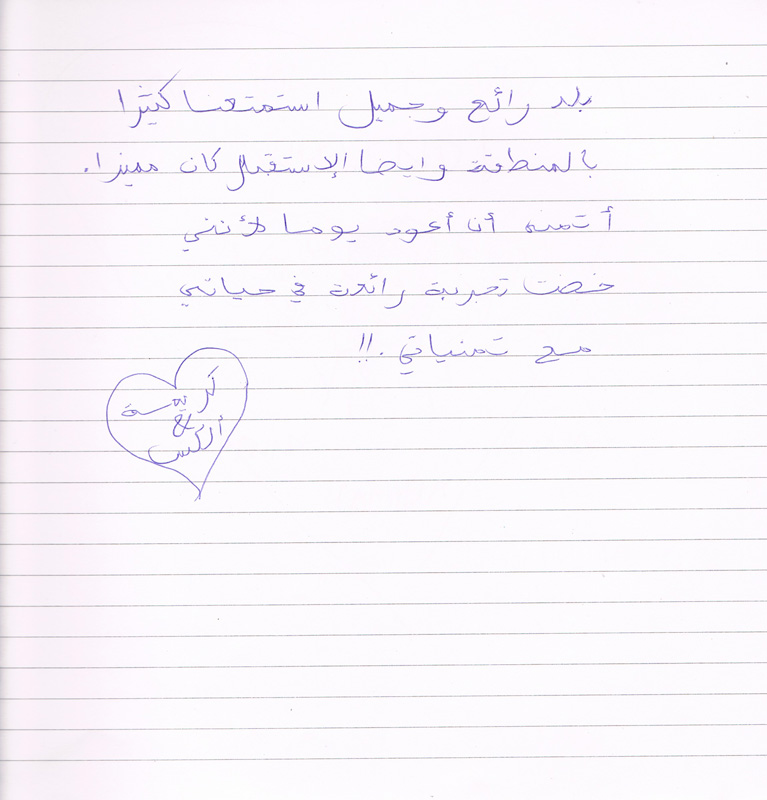 بلد رائع وجميل استمتعنا كثيرا
بالمنطقة وايضا الإستقبال كان مميزا.
أتمنه أن أعود يوما لأنني
خضت تجربة رائعة في حياتي
مع تمنياتي.!!
كريمة
&
ألكس